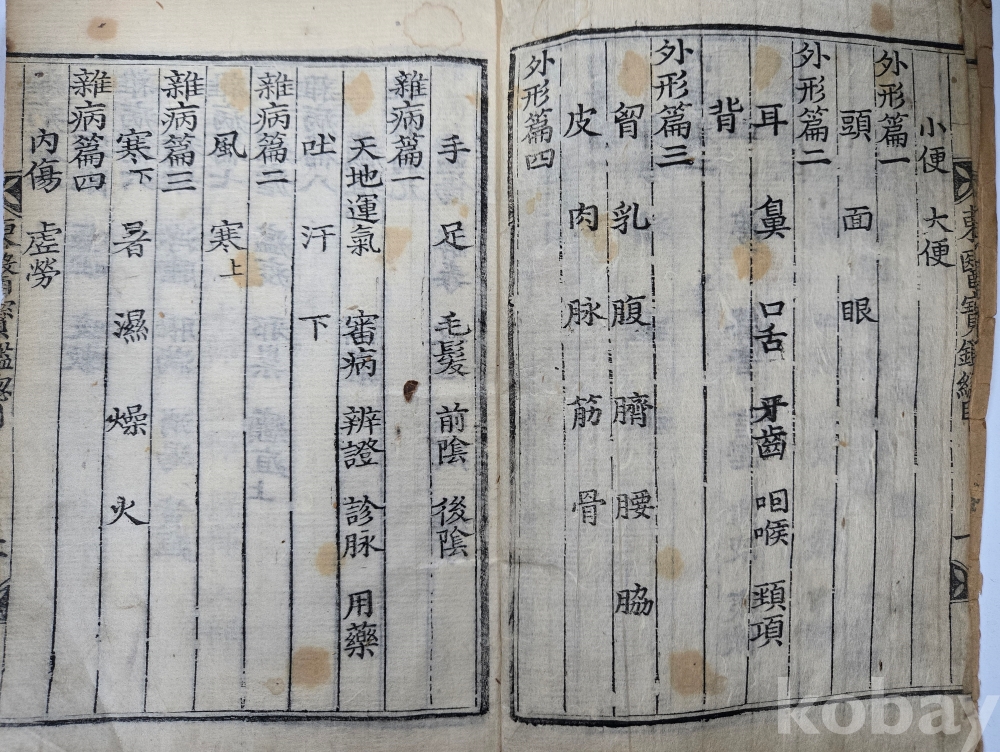 小便 大便
外形篇一
頭 面 眼
外形篇二
耳 鼻 口舌 牙齒 咽喉 頸項
背
外形篇三
胷 乳 腹 臍 腰 脇
皮 肉 脉 筋 骨
外形篇四
手 足 毛髮 前陰 後陰
雜病篇一
天地運氣 審病 辨證 診脉 用藥
吐 汗 下
雜病篇二
風 寒上
雜病篇三
寒下 暑 濕 燥 火
雜病篇四
內傷 虛勞
東醫寶鑑總目
kobay